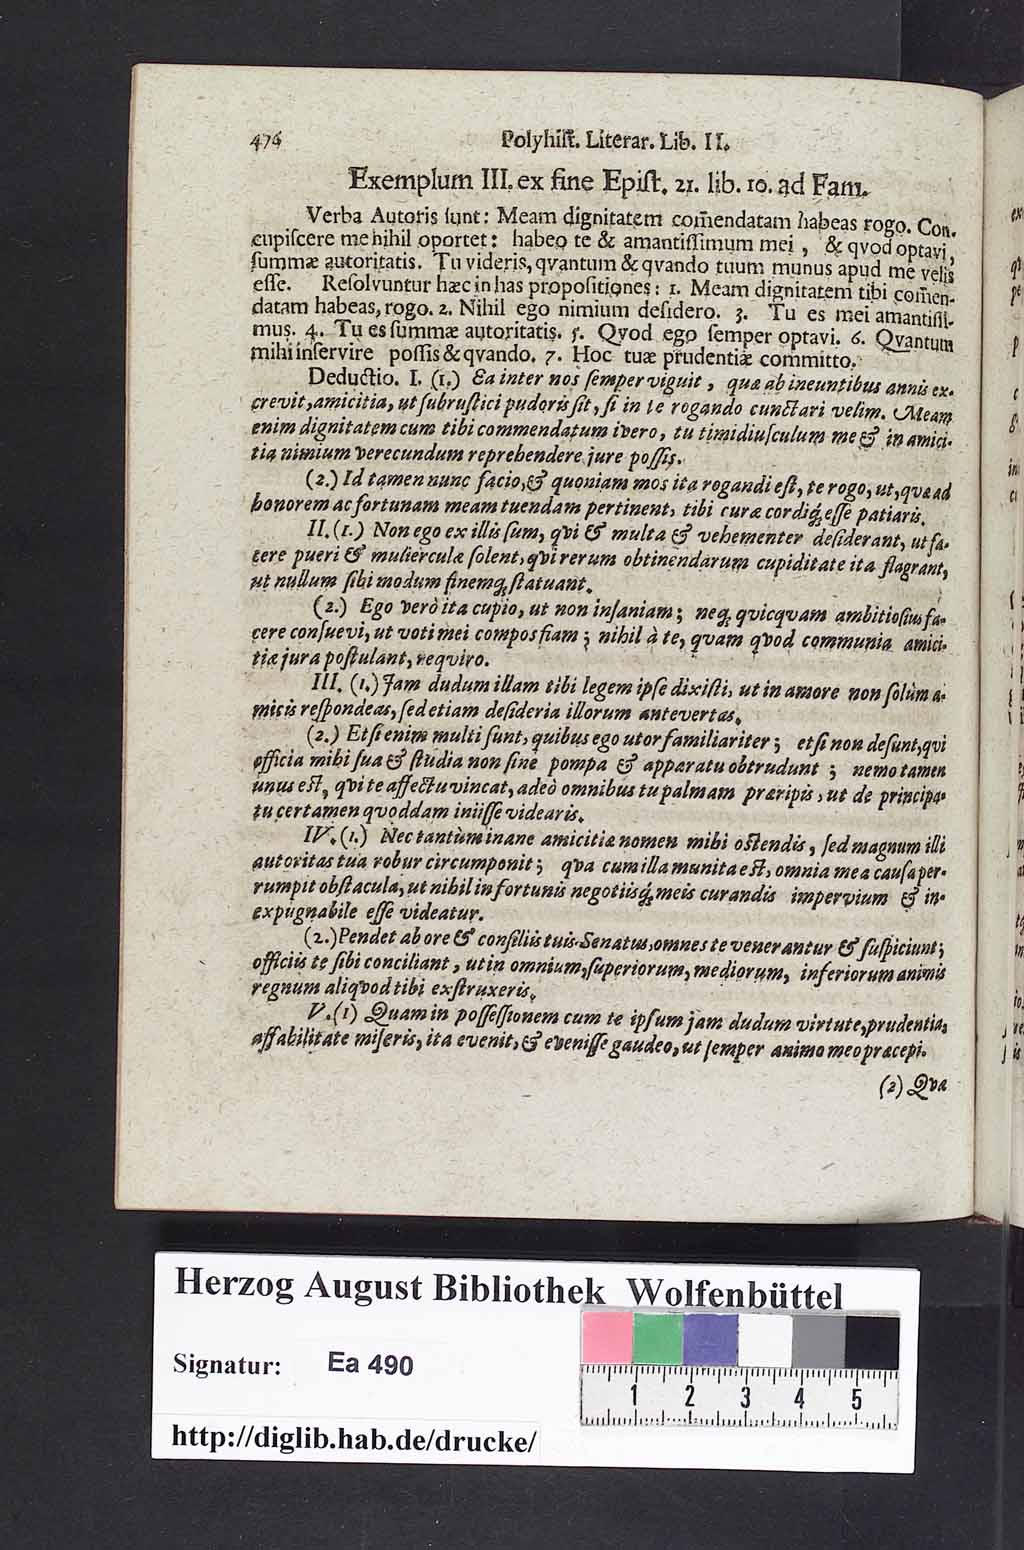 476 Polyhiſt. Literar. Lib. II.
Exemplum III. ex fine Epiſt. 21. lib. 10. ad Fam.
Verba Autoris ſunt: Meam dignitatem com̃endatam habeas rogo. Con-
cupiſcere me nihil oportet: habeo te & amantiſſimum mei, & qvod optavi,
ſummæ autoritatis. Tu videris, qvantum & qvando tuum munus apud me velis
eſſe. Reſolvuntur hæc in has propoſitiones: 1. Meam dignitatem tibi com̃en-
datam habeas, rogo. 2. Nihil ego nimium deſidero. 3. Tu es mei amantiſſi-
mus. 4. Tu es ſummæ autoritatis. 5. Qvod ego ſemper optavi. 6. Qvantum
mihi inſervire poſſis & qvando. 7. Hoc tuæ prudentiæ committo.
Deductio. I. (1.) Ea inter nos ſemper viguit, quæ ab ineuntibus annis ex-
crevit, amicitia, ut ſubruſtici pudoris ſit, ſi in te rogando cunctari velim. Meam
enim dignitatem cum tibi commendatum ivero, tu timidiuſculum me & in amici-
tia nimium verecundum reprehendere jure poſſis.
(2.) Id tamen nunc facio, & quoniam mos ita rogandi eſt, te rogo, ut, quæ ad
honorem ac fortunam meam tuendam pertinent, tibi curæ cordiq́; eſſe patiaris.
II. (1.) Non ego ex illis ſum, qvi & multa & vehementer deſiderant, ut fa-
cere pueri & mulierculæ ſolent, qvi rerum obtinendarum cupiditate ita flagrant,
ut nullum ſibi modum finemq; ſtatuant.
(2.) Ego verò ita cupio, ut non inſaniam; neq; quicquam ambitioſius fa-
cere conſuevi, ut voti mei compos fiam; nihil à te, qvam qvod communia amici-
tiæ jura poſtulant, reqviro.
III. (1.) Jam dudum illam tibi legem ipſe dixiſti, ut in amore non ſolùm a-
micis reſpondeas, ſed etiam deſideria illorum antevertas.
(2.) Etſi enim multi ſunt, quibus ego utor familiariter; etſi non deſunt, qvi
officia mihi ſua & ſtudia non ſine pompa & apparatu obtrudunt; nemo tamen
unus eſt, qvi te affectu vincat, adeò omnibus tu palmam præripis, ut de principa-
tu certamen quoddam iniiſſe videaris.
IV. (1.) Nec tantùm inane amicitiæ nomen mihi oſtendis, ſed magnum illi
autoritas tua robur circumponit; qva cum illa munita eſt, omnia mea cauſa per-
rumpit obſtacula, ut nihil in fortunis negotiisq́; meis curandis impervium & in-
expugnabile eſſe videatur.
(2.) Pendet ab ore & conſiliis tuis Senatus, omnes te venerantur & ſuſpiciunt;
officiis te ſibi conciliant, ut in omnium, ſuperiorum, mediorum, inferiorum animis
regnum aliqvod tibi exſtruxeris.
V. (1) Quam in poſſeſſionem cum te ipſum jam dudum virtute, prudentia,
affabilitate miſeris, ita evenit, & eveniſſe gaudeo, ut ſemper animo meo præcepi.
(2) Qva
Herzog August Bibliothek Wolfenbüttel
Signatur: Ea 490
1 2 3 4 5
http://diglib.hab.de/drucke/